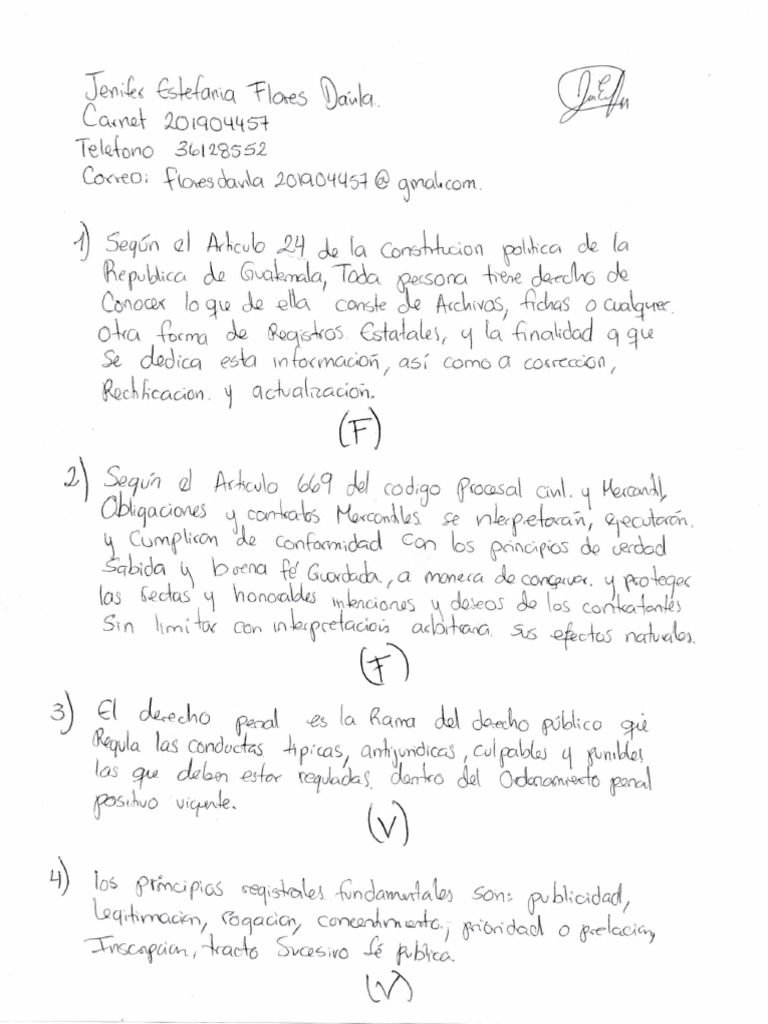 Jenifer Estefania Flores Davila.
Carnet 201904457
Telefono 36128552
Correo: floresdavila201904457@gmail.com.
1) Según el Articulo 24 de la Constitucion politica de la
Republica de Guatemala, Toda persona tiene derecho de
Conocer lo que de ella conste de Archivos, fichas o cualquer.
otra forma de Registros Estatales, y la finalidad a que
se dedica esta información, así como a corrección,
Rectificacion. y actualización.
(F)
2) Según el Articulo 669 del codigo Procesal civil. y Mercantil,
Obligaciones y contratos Mercantiles. se interpretarán, ejecutarán.
y Cumpliran de conformidad con los principios de verdad
Sabida y buena fé Guardada, a manera de conservar. y proteger
las rectas y honorables intenciones y deseos de los contratantes
Sin limitar con interpretación arbitraria. sus efectos naturales.
(F)
3) El derecho penal es la Rama del derecho público que
Regula las conductas tipicas, antijuridicas, culpables y punibles
las que deben estar reguladas. dentro del Ordenamiento penal
positivo vigente.
(V)
4) los principias registrales fundamentales son: publicidad,
Legitimacion, rogacion, consentimiento., prioridad o prelacion,
Inscripcion, tracto Sucesivo fé publica.
(V)